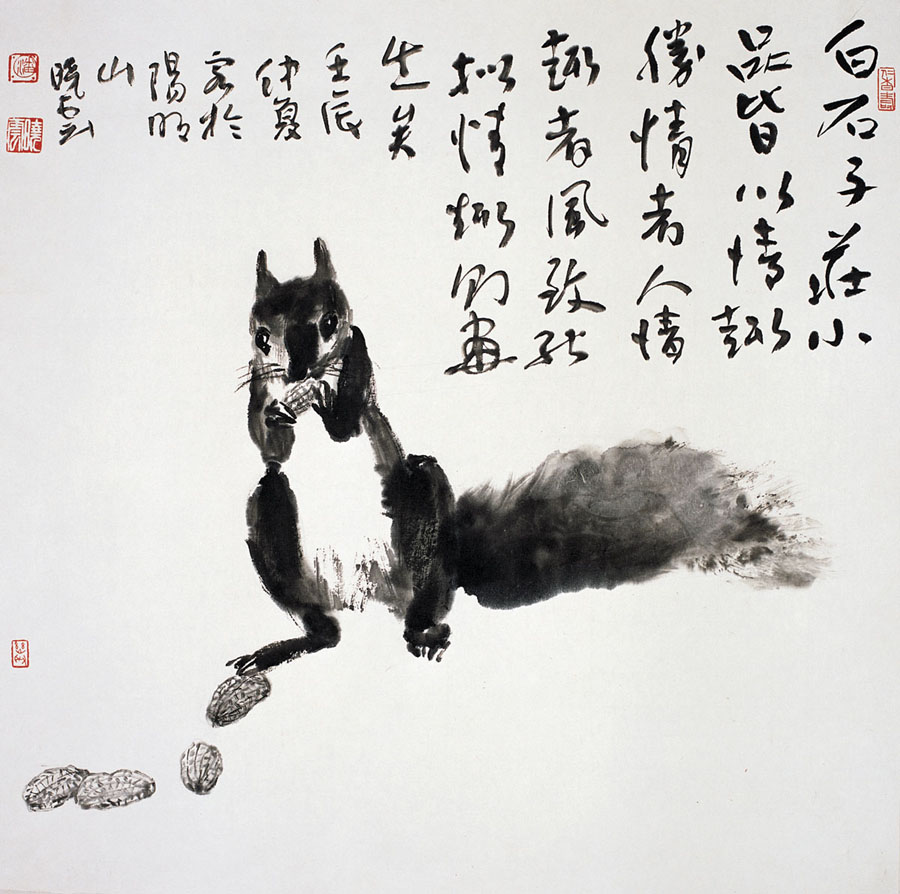 白石子莊小
品皆以情趣
勝情者人情
趣者風致能
拟情趣則畫
生矣
壬辰
仲夏
客於
陽明
山
曉雲